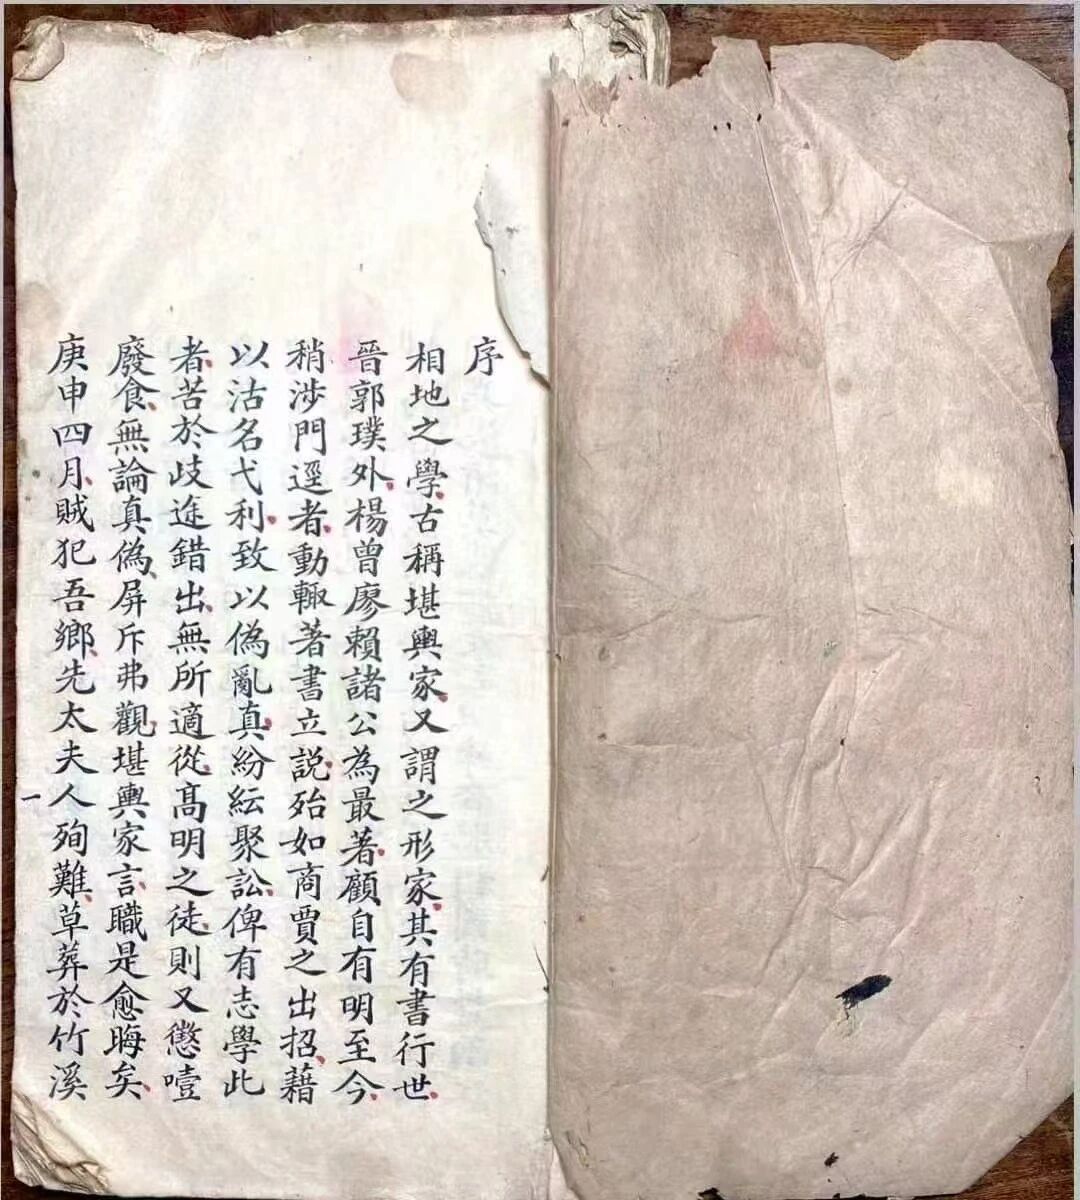 序
相地之學古稱堪輿家又謂之形家其有書行世
晉郭璞外楊曾廖賴諸公為最著顧自有明至今
稍涉門逕者動輙著書立說殆如商賈之出招藉
以沽名弋利致以偽亂真紛紜聚訟俾有志學此
者苦於歧途錯出無所適從高明之徒則又懲噎
廢食無論真偽屏斥弗觀堪輿家言職是愈晦矣
庚申四月賊犯吾鄉先太夫人殉難草葬於竹溪
一